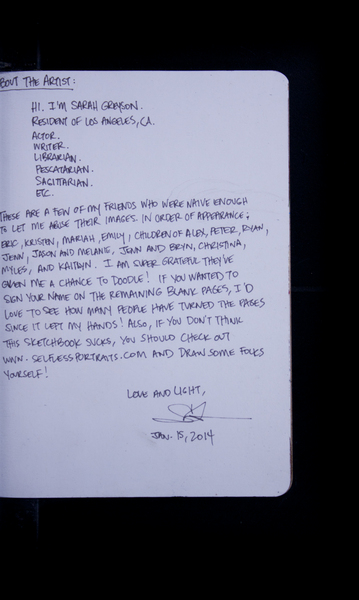 BOUT THE ARTIST:
HI. I'M SARAH GREYSON.
RESIDENT OF LOS ANGELES, CA.
ACTOR.
WRITER.
LIBRARIAN.
PESCATARIAN.
SAGITTARIAN.
ETC.
THESE ARE A FEW OF MY FRIENDS WHO WERE NAIVE ENOUGH
TO LET ME ABUSE THEIR IMAGES. IN ORDER OF APPEARANCE;
ERIC, KRISTEN, MARIAH, EMILY, CHILDREN OF ALEX, PETER, RYAN,
JENN, JASON AND MELANIE, JENN AND BRYN, CHRISTINA,
MYLES, AND KAITLYN. I AM SUPER GRATEFUL THEY'VE
GIVEN ME A CHANCE TO DOODLE! IF YOU WANTED TO
SIGN YOUR NAME ON THE REMAINING BLANK PAGES, I'D
LOVE TO SEE HOW MANY PEOPLE HAVE TURNED THE PAGES
SINCE IT LEFT MY HANDS! ALSO, IF YOU DON'T THINK
THIS SKETCHBOOK SUCKS, YOU SHOULD CHECK OUT
WWW.SELFLESSPORTRAITS.COM AND DRAW SOME FOLKS
YOURSELF!
LOVE AND LIGHT,
JAN. 15, 2014